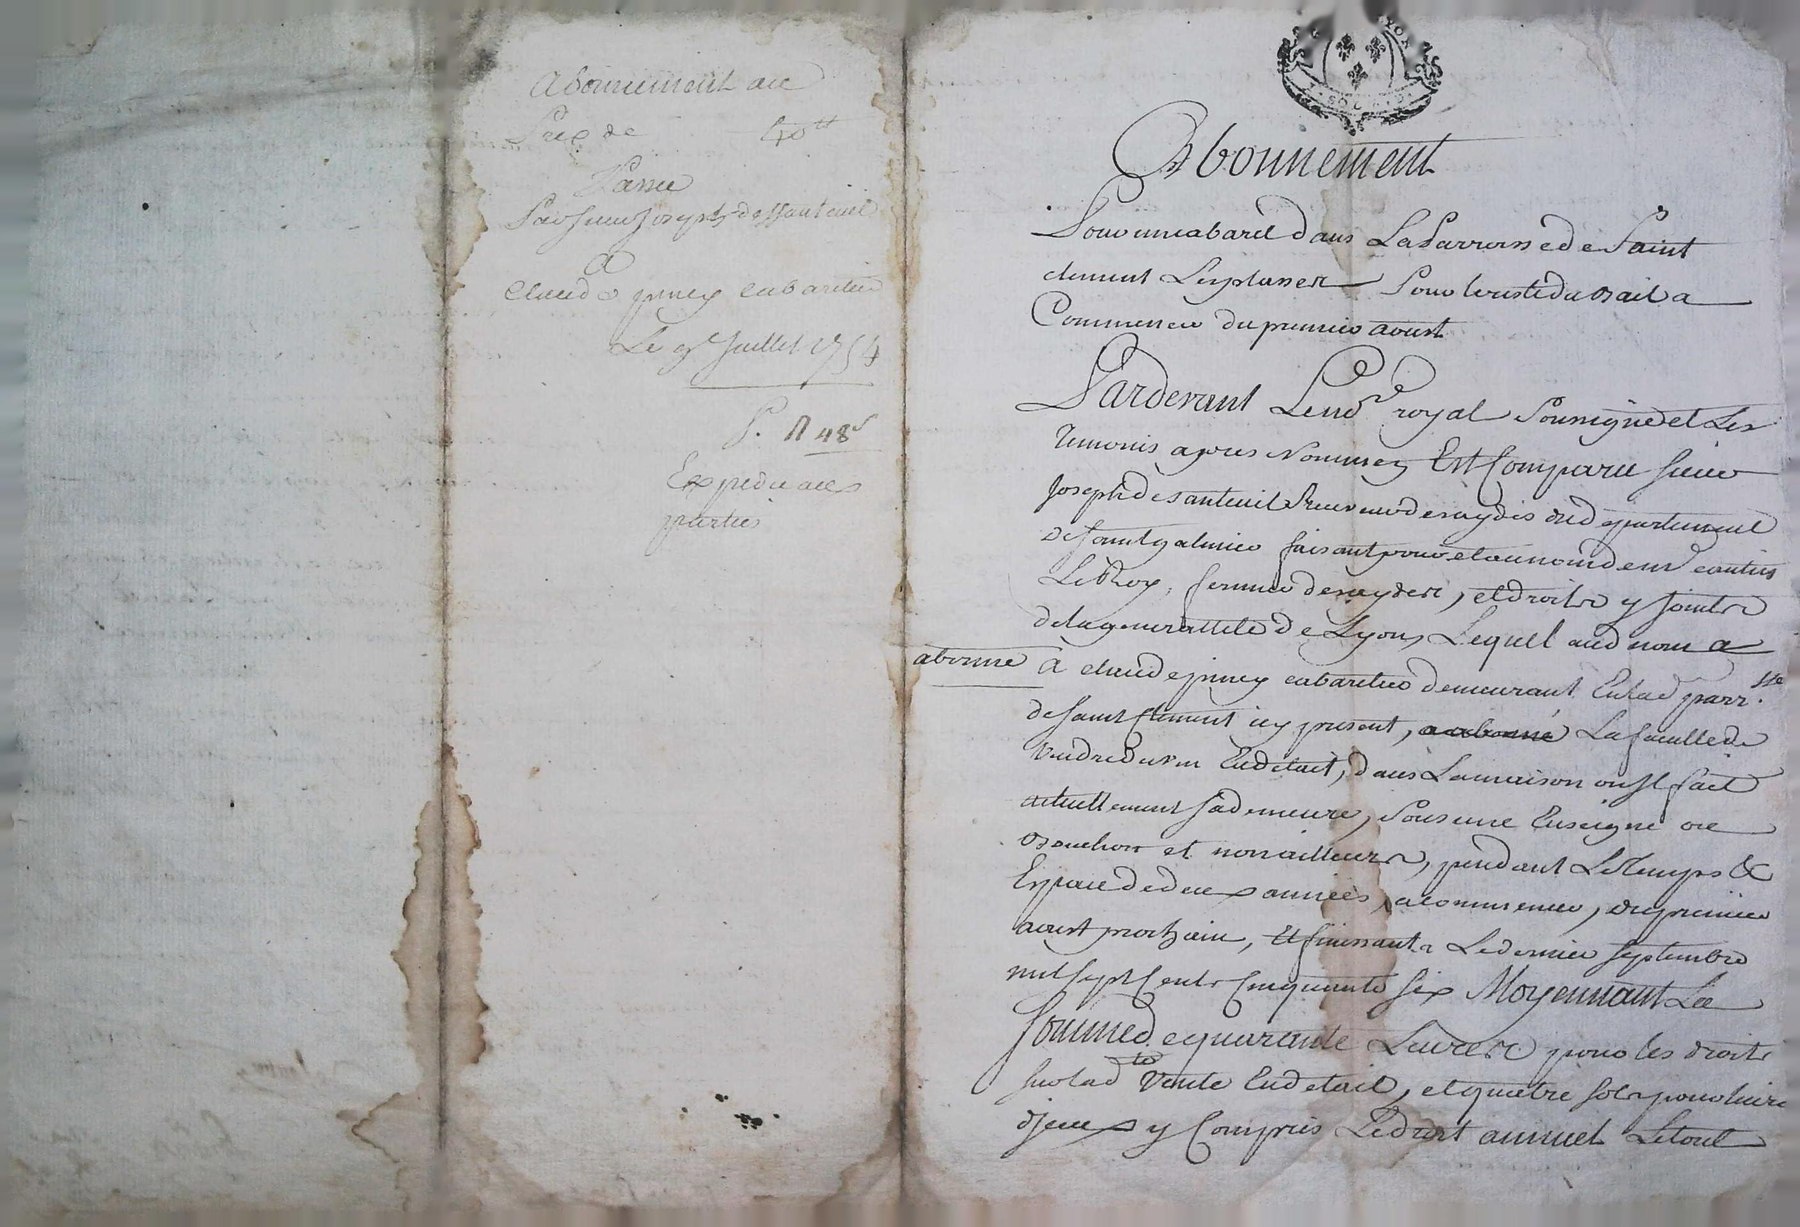 Abonnement au
Prix de 40ᵗᵗ
Passé
Par sieur Joseph dessanteuil
a
Claude piney cabaretier
Le 9ᵉ Juillet 1754
P. n 48ˢ
Expedié aux
parties
Abonnement
Pour un cabaret dans La Parroisse de Saint
clement Lesplasses Pour le reste du Bail a
Commencer du premier aoust
Pardevant Le noʳᵉ royal Soussigné et Les
temoins apres Nommez Est Comparu sieur
Joseph de santeuil Receveur des aydes du departement
de saint galmier faisant pour et au nom de mʳ
Le Roy, fermier des aydes, et droits y joints
de la generallité de Lyon, Lequel aud nom a
abonné a claude piney cabaretier demeurant En lad parrˢˢᵉ
de saint Clement icy present, a abonné La faculté de
Vendre du vin En detail, dans La maison ou Il fait
actuellement sa demeure, Sous une Enseigne ou
Bouchon et non ailleurs, pendant Le temps &
Espace de deux années, a commencer, du premier
aoust prochain, Et finissant Le dernier septembre
mil sept Cents Cinquante six Moyennant La
Somme de quarante Livres pour les droits
sur lad ᵗᵉ Vente En detail, et quatre sols pour livre
d'jceux y Compris Le droit annuel Le tout